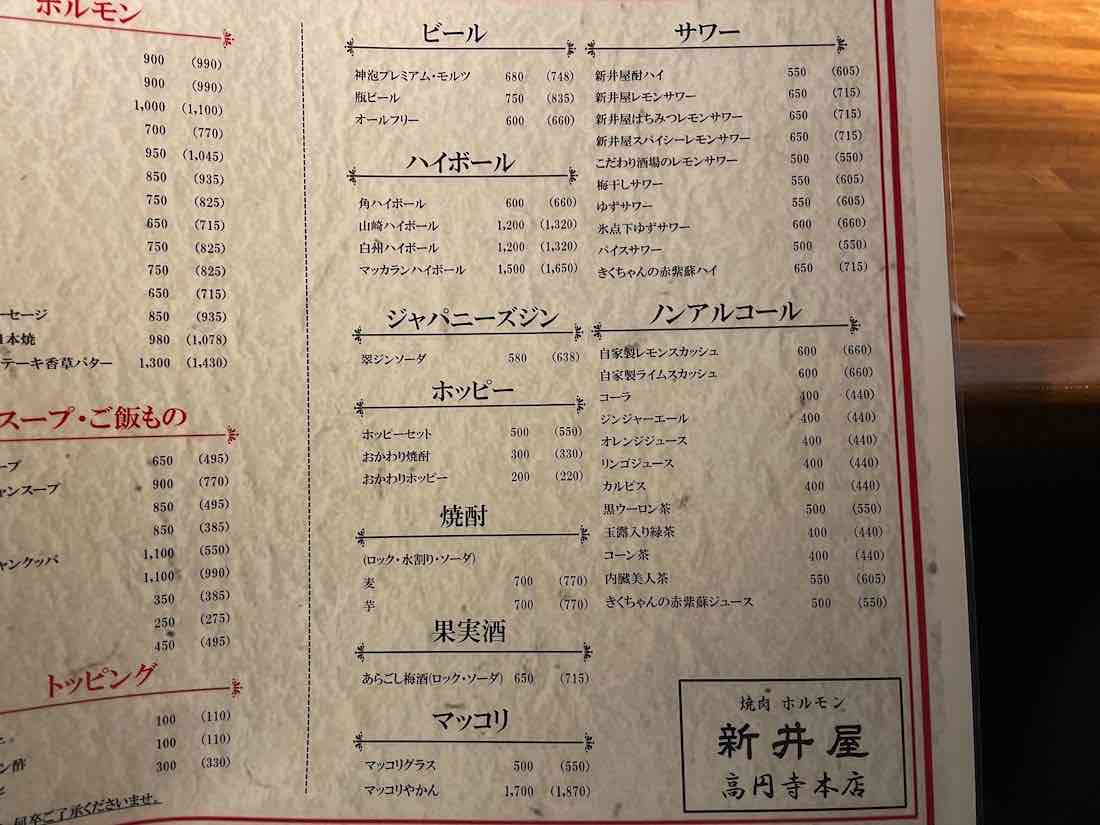 ホルモン
900 (990)
900 (990)
1,000 (1,100)
700 (770)
950 (1,045)
850 (935)
750 (825)
650 (715)
750 (825)
750 (825)
650 (715)
ーセージ 850 (935)
本焼 980 (1,078)
テーキ香草バター 1,300 (1,430)
スープ・ご飯もの
ープ 650 (495)
ャンスープ 900 (770)
850 (495)
850 (385)
ャンクッパ 1,100 (550)
1,100 (990)
350 (385)
250 (275)
450 (495)
トッピング
100 (110)
100 (110)
ン酢 300 (330)
何卒ご了承くださいませ。
ビール
神泡プレミアム・モルツ 680 (748)
瓶ビール 750 (835)
オールフリー 600 (660)
ハイボール
角ハイボール 600 (660)
山崎ハイボール 1,200 (1,320)
白州ハイボール 1,200 (1,320)
マッカランハイボール 1,500 (1,650)
ジャパニーズジン
翠ジンソーダ 580 (638)
ホッピー
ホッピーセット 500 (550)
おかわり焼酎 300 (330)
おかわりホッピー 200 (220)
焼酎
(ロック・水割り・ソーダ)
麦 700 (770)
芋 700 (770)
果実酒
あらごし梅酒(ロック・ソーダ) 650 (715)
マッコリ
マッコリグラス 500 (550)
マッコリやかん 1,700 (1,870)
サワー
新井屋酎ハイ 550 (605)
新井屋レモンサワー 650 (715)
新井屋はちみつレモンサワー 650 (715)
新井屋スパイシーレモンサワー 650 (715)
こだわり酒場のレモンサワー 500 (550)
梅干しサワー 550 (605)
ゆずサワー 550 (605)
氷点下ゆずサワー 600 (660)
バイスサワー 500 (550)
きくちゃんの赤紫蘇ハイ 650 (715)
ノンアルコール
自家製レモンスカッシュ 600 (660)
自家製ライムスカッシュ 600 (660)
コーラ 400 (440)
ジンジャーエール 400 (440)
オレンジジュース 400 (440)
リンゴジュース 400 (440)
カルピス 400 (440)
黒ウーロン茶 500 (550)
玉露入り緑茶 400 (440)
コーン茶 400 (440)
内臓美人茶 550 (605)
きくちゃんの赤紫蘇ジュース 500 (550)
焼肉 ホルモン
新井屋
高円寺本店